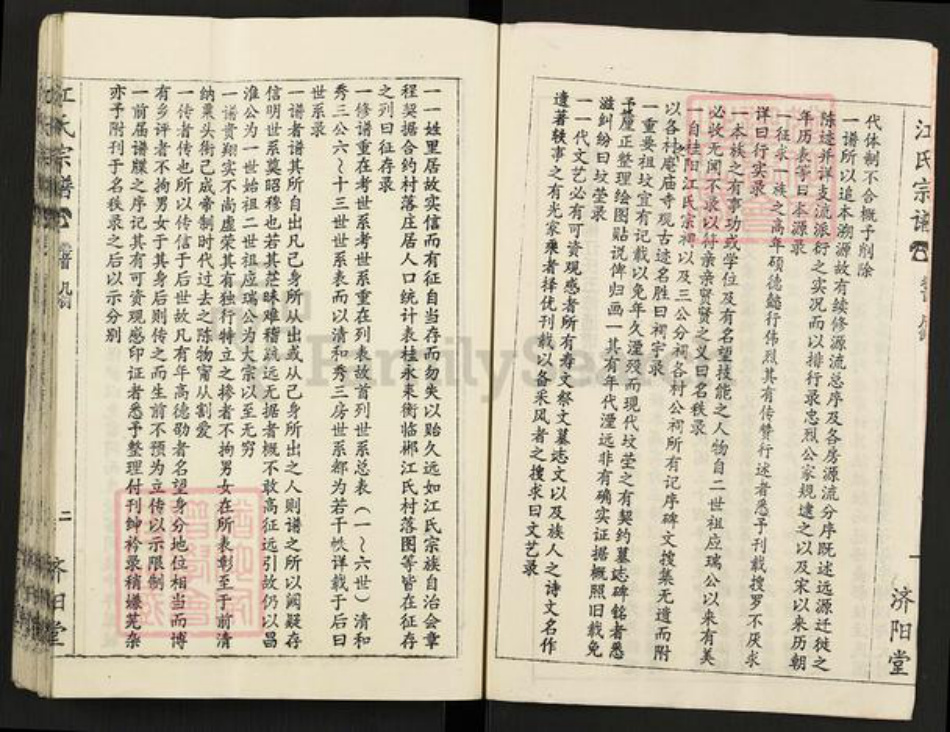 江氏宗谱
济阳堂
代体制不合概予削除
一谱所以追本溯源故有续修源流总序及各房源流分序既述远源迁徙之
陈迹并详支流派衍之实况而以排行录忠烈公家规逮之以及宋以来历朝
年历表等曰本源录
一征求一族之高年硕德懿行伟烈其有传赞行述者悉予刊载搜罗不厌求
详曰行实录
一本族之有事功或学位及有名望技能之人物自二世祖应瑞公以来有美
必收无闻不录以符亲亲贤贤之义曰名秩录
一自桂阳江氏宗祠以及三公分祠各村公祠所有记序碑文搜集无遗而附
以各村庵庙寺观古迹名胜曰祠宇录
一重要祖坟宜有记载以免年久湮殁而现代坟茔之有契约墓志碑铭者悉
予厘正整理绘图贴说俾归画一其有年代湮远非有确实证据概照旧载免
滋纠纷曰坟茔录
一一代文艺必有可资观感者所有寿文祭文墓志文以及族人之诗文名作
遗著轶事之有光家乘者择优刊载以备采风者之搜求曰文艺录
一一姓里居故实信而有征自当存而勿失以贻久远如江氏宗族自治会章
程契据合约村落庄居人口统计表桂永耒衡临郴江氏村落图等皆在征存
之列曰征存录
一修谱重在考世系考世系重在列表故首列世系总表（一～六世）清和
秀三公六～十三世世系表而以清和秀三房世系都为若干帙详载于后曰
世系录
一谱者谱其所自出凡己身所从出或从己身所出之人则谱之所以阙疑存
信明世系奠昭穆也若其茫昧难稽疏远无据者概不敢高征远引故仍以昌
淮公为一世始祖二世祖应瑞公为大宗以至无穷
一谱贵翔实不尚虚荣其有独行特立之掺者不拘男女在所表彰至于前清
纳粟头衔已成帝制时代过去之陈物甯从割爱
一传者传也所以传信于后世故凡有年高德劭者名望身分地位相当而博
有乡评者不拘男女于其身后则传之而生前不预为立传以示限制
一前届谱牒之序记其有可资观感印证者悉予整理付刊绅衿录稍嫌芜杂
亦予附刊于名秩录之后以示分别
江氏宗谱
二
济阳堂
FamilySearch